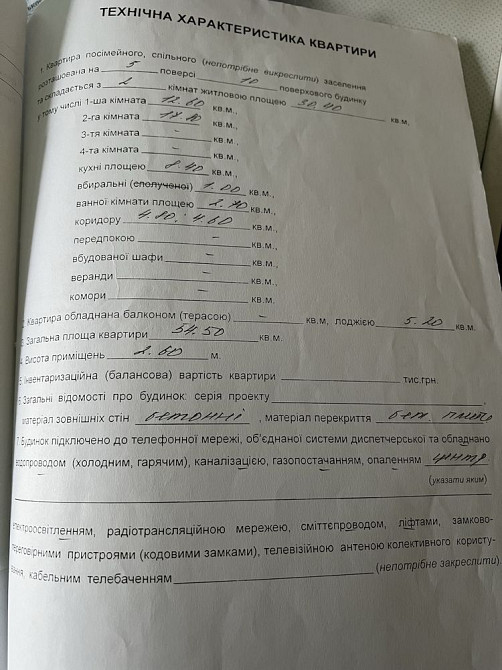 ТЕХНІЧНА ХАРАКТЕРИСТИКА КВАРТИРИ
1. Квартира посімейного, спільного (непотрібне викреслити) заселення
розташована на 5 поверсі 10 поверхового будинку
та складається з 2 кімнат житловою площею 30.40 кв.м,
у тому числі 1-ша кімната 12.60 кв.м.,
2-га кімната кв.м.,
3-тя кімната – кв.м.,
4-та кімната – кв.м.,
кухні площею 8.40 кв.м.,
вбиральні (сполученої) 1.00 кв.м.,
ванної кімнати площею кв.м.,
коридору 4.80; 4.60 кв.м.,
передпокою – кв.м.,
вбудованої шафи – кв.м.,
веранди – кв.м.,
комори – кв.м.,
2. Квартира обладнана балконом (терасою) – кв.м, лоджією 5.20 кв.м.
3. Загальна площа квартири 54.50 кв.м.
4. Висота приміщень 2.60 м.
5. Інвентаризаційна (балансова) вартість квартири тис.грн.
6. Загальні відомості про будинок: серія проекту
матеріал зовнішніх стін бетонні, матеріал перекриття бет. плити
7. Будинок підключено до телефонної мережі, об'єднаної системи диспетчерської та обладнано
водопроводом (холодним, гарячим), каналізацією, газопостачанням, опаленням центр
(указати яким)
електроосвітленням, радіотрансляційною мережею, сміттєпроводом, ліфтами, замково-
переговірними пристроями (кодовими замками), телевізійною антеною колективного користу-
вання, кабельним телебаченням (непотрібне закреслити).